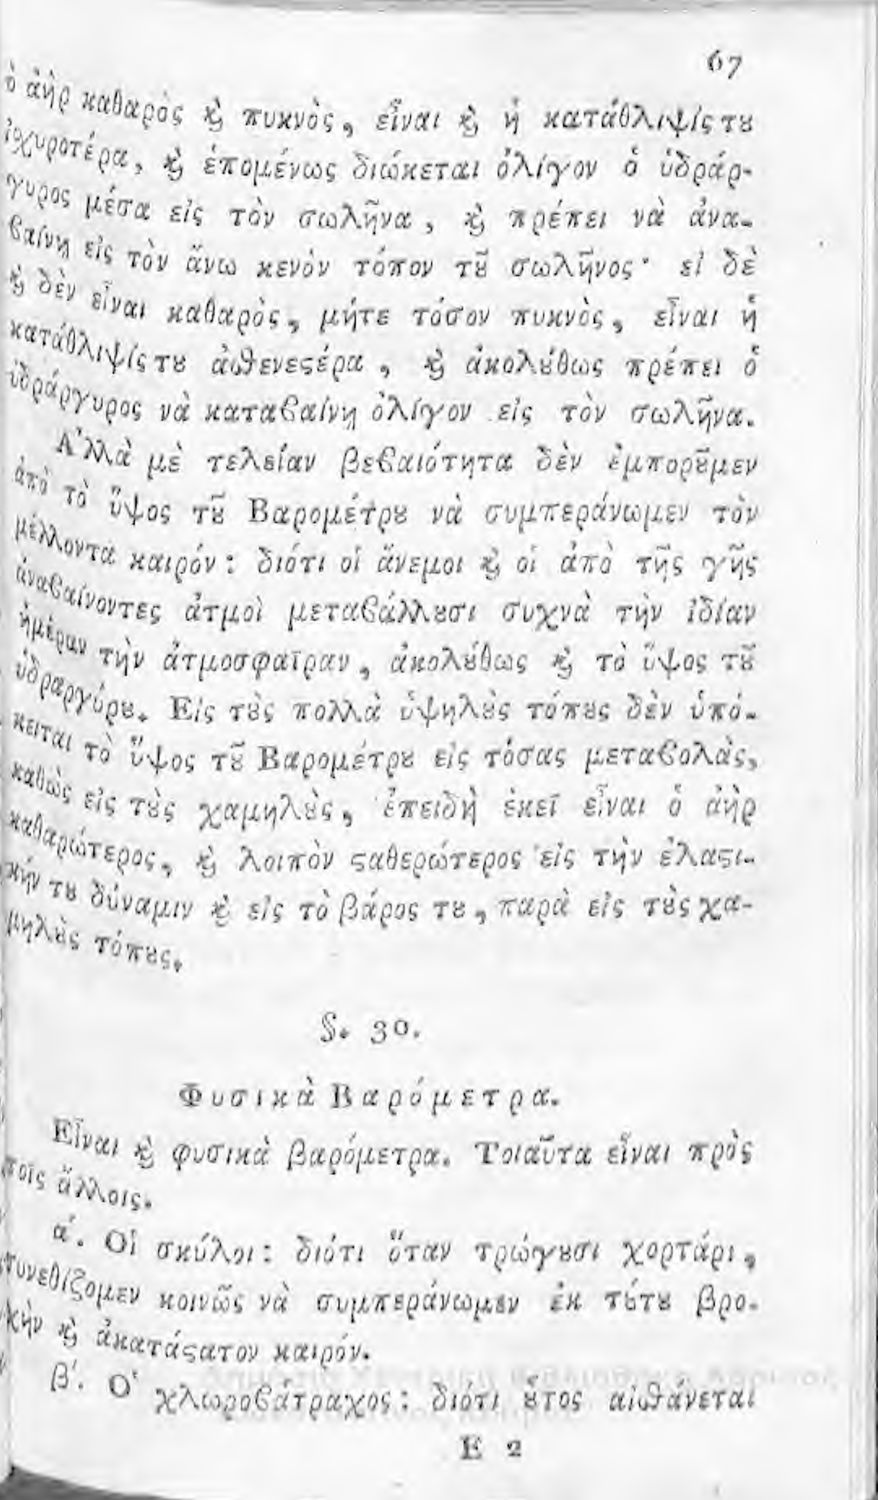 67
ὁ ἀὴρ καθαρὸς ϗ̀ πυκνὸς, εἶναι ϗ̀ ἡ κατάθλιψίς τȣ
ἰχυροτέρα, ϗ̀ ἑπομένως διώκεται ὀλίγον ὁ ὑδράρ-
γυρος μέσα εἰς τὸν σωλῆνα, ϗ̀ πρέπει νὰ ἀνα-
βαίνῃ εἰς τὸν ἄνω κενὸν τόπον τȣ͂ σωλῆνος· εἰ δὲ
ϗ̀ δὲν εἶναι καθαρὸς, μήτε τόσον πυκνὸς, εἶναι ἡ
κατάθλιψίς τȣ ἀσθενεϛέρα, ϗ̀ ἀκολȣ́θως πρέπει ὁ
ὑδράργυρος νὰ καταβαίνῃ ὀλίγον εἰς τὸν σωλῆνα.
Ἀλλὰ μὲ τελείαν βεβαιότητα δὲν ἐμπορȣ͂μεν
ἀπὸ τὸ ὕψος τȣ͂ Βαρομέτρȣ νὰ συμπεράνωμεν τὸν
μέλλοντα καιρόν: διότι οἱ ἄνεμοι ϗ̀ οἱ ἀπὸ τῆς γῆς
ἀναβαίνοντες ἀτμοὶ μεταβάλλȣσι συχνὰ τὴν ἰδίαν
ἡμέραν τὴν ἀτμοσφαῖραν, ἀκολȣ́θως ϗ̀ τὸ ὕψος τȣ͂
ὑδραργύρȣ. Εἰς τȣ̀ς πολλὰ ὑψηλȣ̀ς τόπȣς δὲν ὑπό-
κειται τὸ ὕψος τȣ͂ Βαρομέτρȣ εἰς τόσας μεταβολὰς,
καθὼς εἰς τȣ̀ς χαμηλȣ̀ς, ἐπειδὴ ἐκεῖ εἶναι ὁ ἀὴρ
καθαρώτερος, ϗ̀ λοιπὸν ϛαθερώτερος εἰς τὴν ἐλαϛι-
κήν τȣ δύναμιν ϗ̀ εἰς τὸ βάρος τȣ, παρὰ εἰς τȣ̀ς χα-
μηλȣ̀ς τόπȣς.
§. 30.
Φυσικὰ Βαρόμετρα.
Εἶναι ϗ̀ φυσικὰ βαρόμετρα. Τοιαῦτα εἶναι πρὸς
τοῖς ἄλλοις.
α΄. Οἱ σκύλοι: διότι ὅταν τρώγȣσι χορτάρι,
συνεθίζομεν κοινῶς νὰ συμπεράνωμεν ἐκ τȣ́τȣ βρο-
χὴν ϗ̀ ἀκατάϛατον καιρόν.
β΄. Ὁ χλωροβάτραχος: διότι ȣ̔͂τος αἰσθάνεται
Ε 2